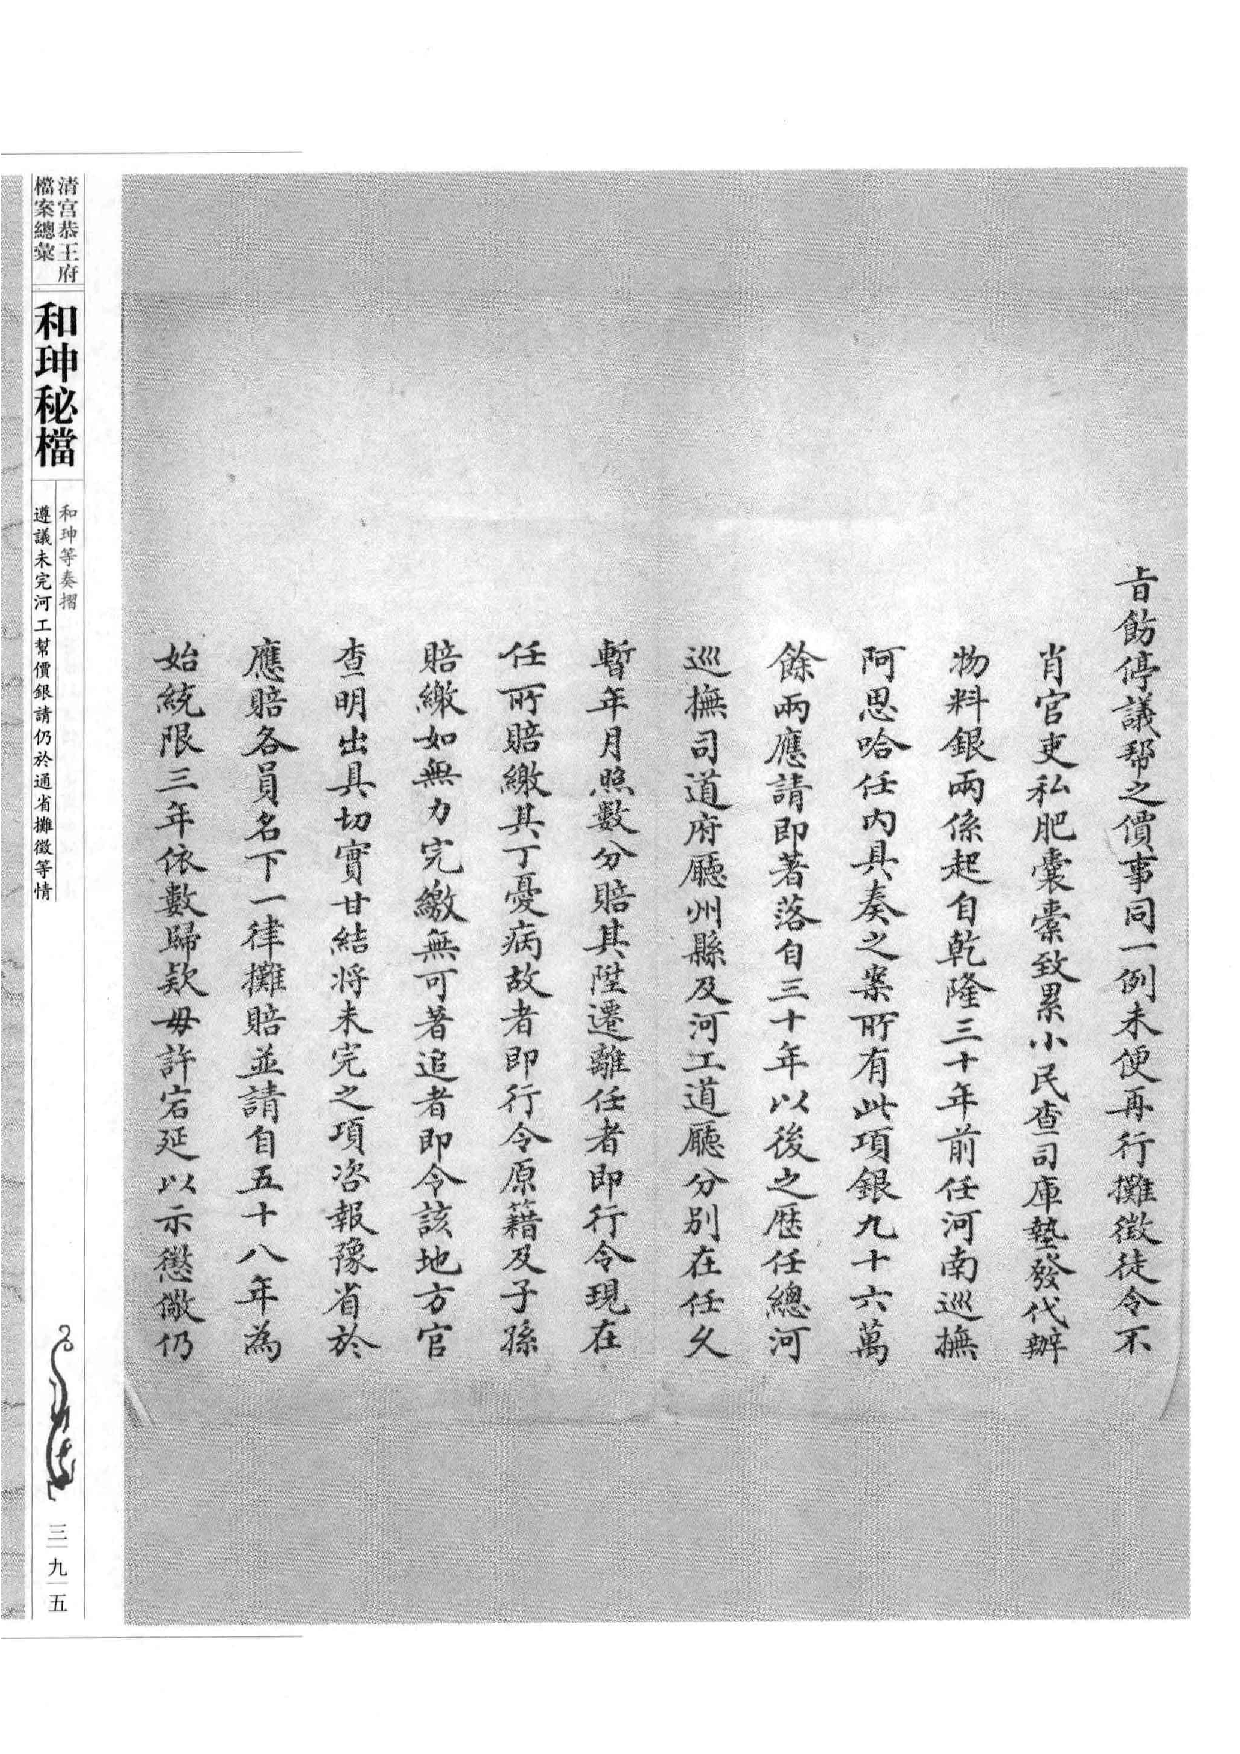 旨飭停議帮之價事同一例未便再行攤徵徒令不
肖官吏私肥囊橐致累小民查司庫墊發代辦
物料銀兩係起自乾隆三十年前任河南巡撫
阿思哈任內具奏之案所有此項銀九十六萬
餘兩應請即著落自三十年以後之歷任總河
巡撫司道府廳州縣及河工道廳分別在任久
暫年月照數分賠其陞遷離任者即行令現在
任所賠繳其丁憂病故者即行令原籍及子孫
賠繳如無力完繳無可著追者即令該地方官
查明出具切實甘結將未完之項咨報豫省於
應賠各員名下一律攤賠並請自五十八年為
始統限三年依數歸款毋許宕延以示懲儆仍
清宮恭王府
檔案總彙
和珅秘檔
和珅等奏摺
遵議未完河工幫價銀請仍於通省攤徵等情
三九五